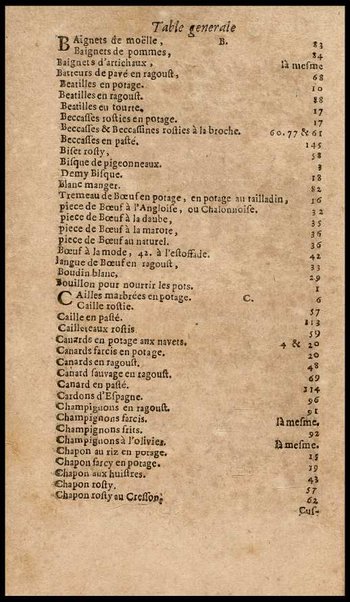 Table generale
B.
BAignets de moëlle, 83
Baignets de pommes, 84
Baignets d'artichaux, là mesme
Batteurs de pavé en ragoust, 68
Beatilles en potage. 10
Beatilles en ragoust. 88
Beatilles en tourte. 17
Becasses rosties en potage. 17
Becasses & Becassines rosties à la broche. 60. 77 & 61
Becasses en pasté. 145
Biset rosty, 58
Bisque de pigeonneaux. 3
Demy Bisque. 18
Blanc manger. 82
Tremeau de Bœuf en potage, en potage au tailladin, 16
piece de Bœuf à l'Angloise, ou Chalonnoise. 32
piece de Bœuf à la daube, 35
piece de Bœuf à la marote, 36
piece de Bœuf au naturel. 36
Bœuf à la mode, 42. à l'estoffade. 42
langue de Bœuf en ragoust, 33
Boudin blanc, 29
Bouillon pour nourrir les pots. 1
C.
CAilles marbrées en potage. 6
Caille rostie. 57
Caille en pasté. 113
Cailleteaux rostis 59
Canards en potage aux navets. 4 & 20
Canards farcis en potage. 20
Canards en ragoust. 48
Canard sauvage en ragoust. 69
Canard en pasté. 114
Cardons d'Espagne. 96
Champignons en ragoust. 91
Champignons farcis. là mesme.
Champignons frits. 92
Champignons à l'olivier. là mesme.
Chapon au riz en potage. 15
Chapon farcy en potage. 19
Chapon aux huistres. 43
Chapon rosty. 57
Chapon rosty au Cresson. 62
Cus-